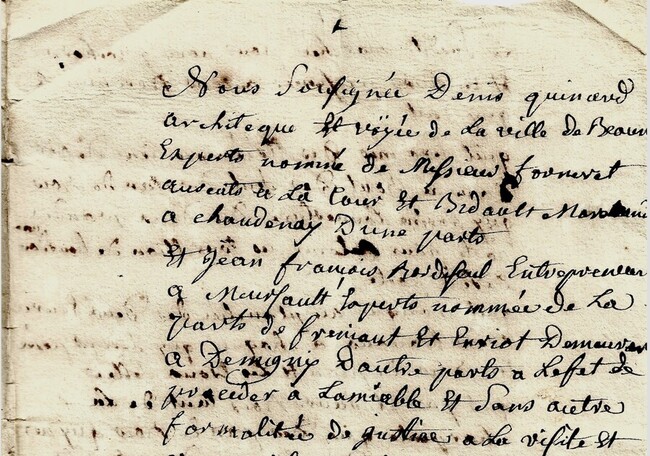 Nous Sousignée Denis quinard
architeque Et voyée de La ville de Beaun
Experts nommé de Messieur forneret
auocats a La Cour Et Bidault Marchand
a chaudenay Dune parts
Et Jean françois Entrepreneur
a Meursault Experts nommée de La
parts de fremont Et Demeuran
a Demigny Dautre parts a Lefet de
proceder a Lamiable Et Sans autre
formalitée de justice a La visite Et